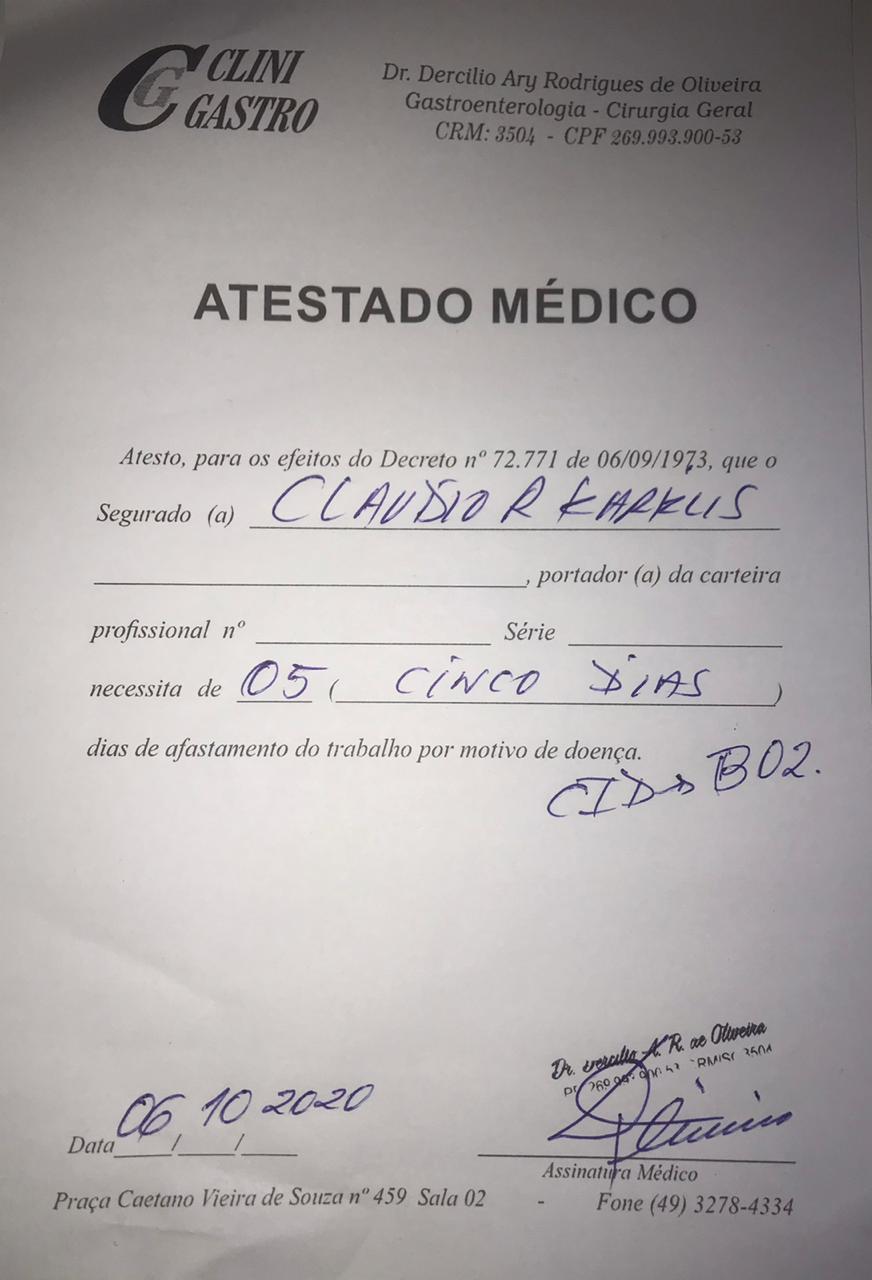 CG CLINI
GASTRO
Dr. Dercilio Ary Rodrigues de Oliveira
Gastroenterologia - Cirurgia Geral
CRM: 3504 - CPF 269.993.900-53
ATESTADO MÉDICO
Atesto, para os efeitos do Decreto nº 72.771 de 06/09/1973, que o
Segurado (a) CLAUDIO R KARKLIS
, portador (a) da carteira
profissional nº Série
necessita de 05 ( CINCO DIAS )
dias de afastamento do trabalho por motivo de doença.
CID → B02.
Dr. A. R. de Oliveira
3504
Data 06/10/2020
Assinatura Médico
Praça Caetano Vieira de Souza nº 459 Sala 02 - Fone (49) 3278-4334